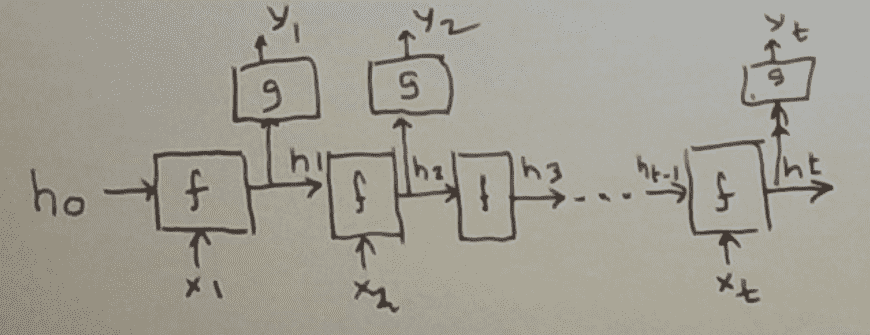 y1 y2 yt
g g g
h0 f h1 f h2 f h3 ... ht-1 f ht
x1 x2 xt